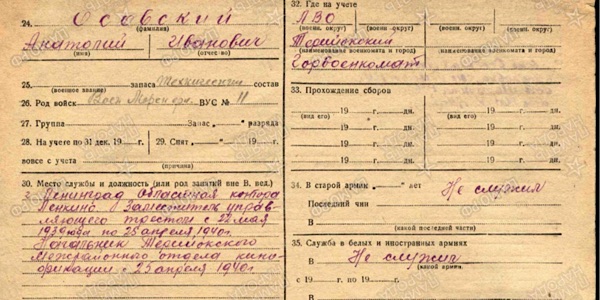 24. Осовский
(фамилия)
Анатолий Иванович
(имя) (отчество)
25. запаса Технический состав
(военное звание)
26. Род войск Воен. Морск. ВУС № 11
27. Группа Запас разряда
28. На учете по 31 дек. 19 г. 29. Снят 19 г.
вовсе с учета
(причина)
30. Место службы и должность (или род занятий вне В. вед.)
Ленинград Областная контора
Ленкино Заместитель управ-
ляющего трестом с 22 мая
1939 года по 25 апреля 1940г.
Начальник Териокского
Межрайонного отдела кино-
фикации с 25 апреля 1940г.
32. Где на учете
(военн. округ) (военн. округ)
ЛВО
Териокский
(наименования военкомата и город) (наименования военкомата и город)
Горвоенкомат
33. Прохождение сборов
19 г. дн. 19 г. дн.
(вид его) (вид его)
19 г. дн. 19 г. дн.
19 г. дн. 19 г. дн.
19 г. дн. 19 г. дн.
34. В старой армии лет Не служил
Последний чин
В
(какой последней части)
35. Служба в белых и иностранных армиях
В Не служил
(какой армии)
с 19 г. по 19 г.
В